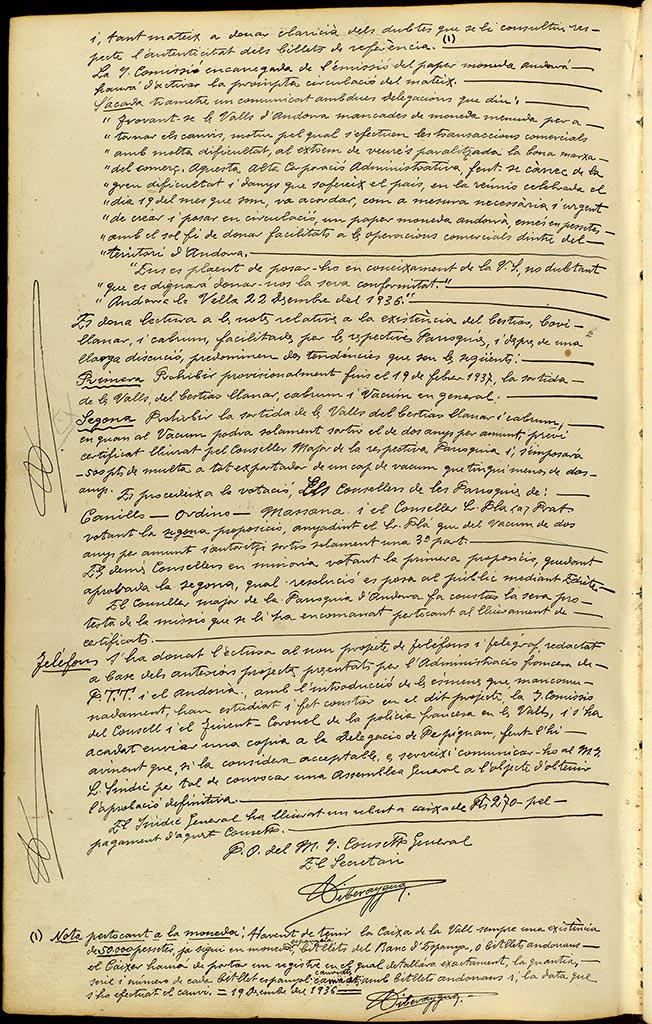 i, tant mateix a donar claricia dels dubtes que se li consultin res-
pecte l'autenticitat dels billets de referència. (1)
La I. Comissió encarregada de l'emissió del paper moneda andorrà
haurà d'activar la prompta circulació del mateix.
S'acada trametre un comunicat ambdues delegacions que diu:
"Trovant-se les Valls d'Andorra mancades de moneda menuda per a
"tornar els canvis, motiu pel qual s'efectuen les transaccions comercials
"amb molta dificultat, al extrem de veure's paralitzada la bona marxa
"del comerç. Aquesta Alta Corporació Administrativa, fent-se càrrec de la
"gran dificultat i danys que sofereix el país, en la reunió celebrada el
"dia 19 del mes que som, va acordar, com a mesura necessària i urgent
"de crear i posar en circulació, un paper moneda andorrà, emès en pessetes
"amb el sol fi de donar facilitats a les operacions comercials dintre del
"territori d'Andorra.
"Ens es plaent de posar-ho en coneixament de la V. S., no dubtant
"que es dignarà donar-nos la seva conformitat."
"Andorra la Vella 22 Dsembre del 1936."
Es dona lectura a les notes relatives a la existència del bestiar, boví-
llanar, i cabrum, facilitades per les respectives Parroquies, i despres de una
llarga discució, predominen dos tendències que son les següents:
Primera Prohibir provisionalment fins el 19 de febrer 1937, la sortida
de les Valls, del bestiar llanar, cabrum i Vacum en general.
Segona Prohibir la sortida de les Valls del bestiar llanar i cabrum,
en quan al Vacum podra solament sortir el de dos anys per amunt, previ
certificat lliurat pel Conseller Major de la respectiva Parroquia i, s'imposarà
500 pts de multa a tot exportador de un cap de vacum que tingui menos de dos
anys. Es procedeixa la votació, Els Consellers de les Parroquies de:
Canillo - Ordino - Massana i el Conseller Sr. Pla (a) Prat
votant la segona proposició, anyadint el Sr. Plà que del Vacum de dos
anys per amunt s'autoritzi sortir solament una 3ª part.
Els demés Consellers en minoria votant la primera proposició, quedant
aprobada la segona, qual resolució es posa al públic mediant Edicte.
El Conseller major de la Parroquia d'Andorra fa constar la seva pro-
testa de la missió que se li ha encomanat pertocant al lliurament de
certificats.
Telèfons S'ha donat lectura al nou projecte de Telèfons i Telègraf, redactat
a base dels anteriors projectes presentats per l'Administració francesa de
P.T.T. i el Andorrà, amb l'introducció de les esmenes que, mancomu-
nadament, han estudiat i fet constar en el dit projecte, la I. Comissió
del Consell i el Tinent-Coronel de la policia francesa en les Valls, i s'ha
acordat enviar una copia a la Delegació de Perpignan, fent-l'hi
avinent que, si la considera acceptable, es serveixi comunicar-ho al M. I.
Sr. Síndic per tal de convocar una Assemblea General a l'objecte d'obtenir
l'aprobació definitiva.
El Síndic General ha lliurat un rebut a caixa de Pts 270 pel
pagament d'aquest Consell.
P. O. del M. I. Consell General
El Secretari
(1) Nota pertocant a la moneda: Havent de tenir la Caixa de la Vall sempre una existència
de 50.000 pessetes, ja sigui en moneda espanyola bitllets del Banc d'Espanya, o bitllets andorrans
el Caixer haurà de portar un registre en el qual detallara exactament, la quantia,
serie i numero de cada bitllet espanyol canviat amb bitllets andorrans i, la data que
s'ha efectuat el canvi. = 19 Dsembre del 1936 =